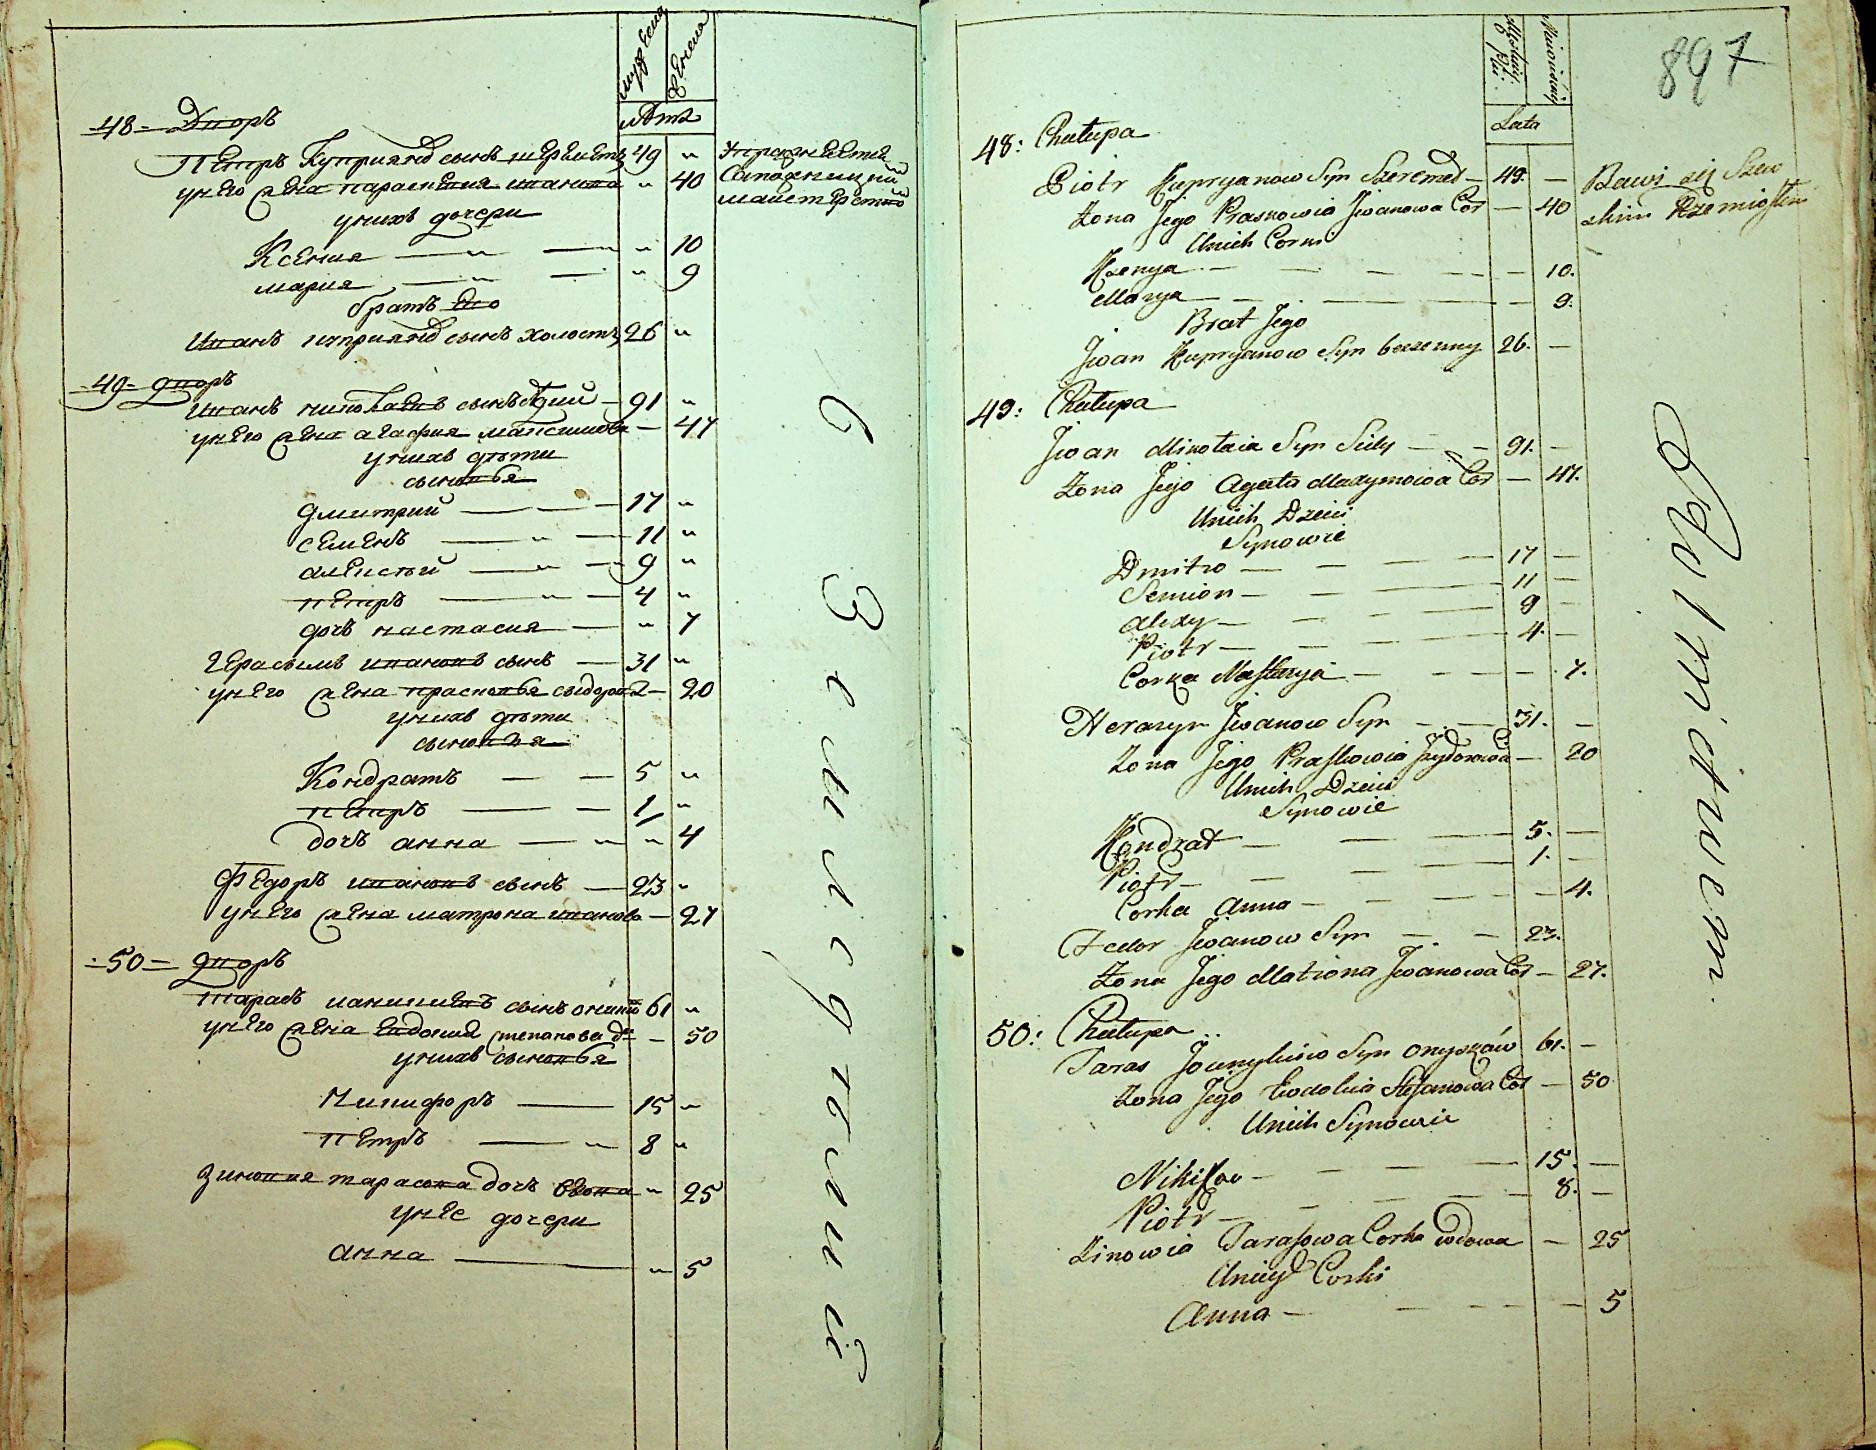 мужеска
женска
лѣта
-48- Дворъ
Петръ Куприянов сынъ шереметъ 49 "
унего жена параскевия иванова " 40
Упражняется
Сапожницким
майстерством
унихъ дочери
Ксения — " — " 10
мария — " — " 9
братъ его
Иванъ куприянов сынъ холостъ 26 "
-49- дворъ
Иванъ николаевъ сынъ — 91 "
унего жена агафия максимова — 47
унихъ дѣти
сыновья
дмитрий — — 17 "
семенъ — " — 11 "
алексѣй — " — 9 "
петръ — " — 4 "
дочь настасия — " 7
герасымъ ивановъ сынъ — 31 "
унего жена прасковья сыдорова — 20
унихъ дѣти
сыновья
Кондратъ — — 5 "
петръ — — 1 "
дочь анна — " " 4
Федоръ ивановъ сынъ — 23 "
унего жена матрона иванова — 27
-50- дворъ
тарасъ сынъ 61 "
унего жена евдокия степанова д. — 50
унихъ сыновья
Никифоръ — 15 "
петръ — " 8 "
зиновия тарасова дочь вдова " 25
унее дочери
анна — " 5
в Земледѣлии
897
Lata
48: Chałupa
Piotr Kupryanow Syn Szeremet — 49. —
Żona Jego Praskowia Jwanowa Cor — 40
Bawi się Szew
skim Rzemiosłem
Unich Corki
Kzenya — — — — — 10.
Marya — — — — 9.
Brat Jego
Jwan Kupryanow Syn bezenny 26. —
49: Chałupa
Jwan Mikołaia Syn — — 91. —
Żona Jego Agata Maxymowa Cor — 47.
Unich Dzieci
Synowie
Dmitro — — — 17 —
Semion — — — 11 —
Alexy — — — 9 —
Piotr — — — 4. —
Corka Nastazya — — — — 7.
Herazym Jwanow Syn — — 31. —
Żona Jego Praskowia Szydorowa — 20
Unich Dzieci
Synowie
Kondrat — — — 5. —
Piotr — — — 1. —
Corka Anna — — — — 4.
Fedor Jwanow Syn — — 23.
Żona Jego Matrona Jwanowa Cor — 27.
50: Chałupa
Taras Syn Onyszków 61. —
Żona Jego Eudokia Stefanowa Cor — 50
Unich Synowie
Nikifor — — — 15. —
Piotr — — — 8. —
Zinowia Tarasowa Corka wdowa — 25
Uniey Corki
Anna — — — — 5
Rolnictwem